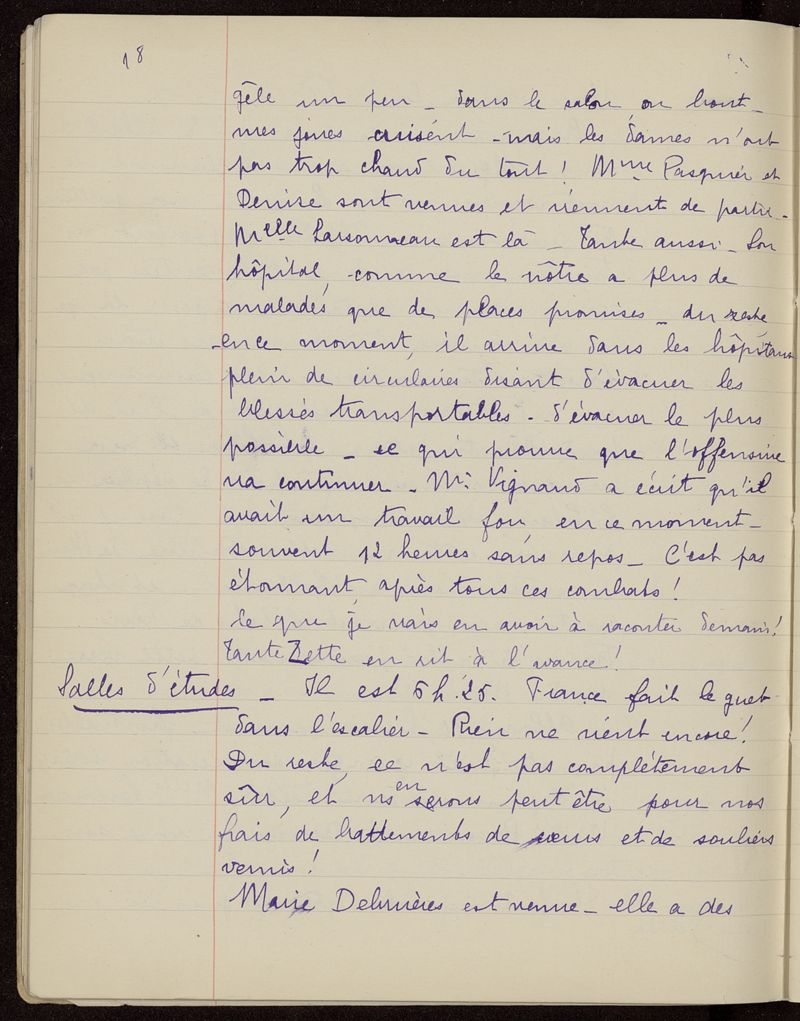 18
gêle un peu _ dans le salon, on bout _
mes joues cuisent - mais les dames n'ont
pas trop chaud du tout ! Mme Pasquier et
Denise sont venues et viennent de partir _
Melle Larsonneau est là _ Tante aussi _ Son
hôpital, comme le nôtre a plus de
malades que de places promises _ du reste
en ce moment, il arrive dans les hôpitaux
plein de circulaires disant d'évacuer les
blessés transportables - d'évacuer le plus
possible _ ce qui prouve que l'offensive
va continuer - Mr Vignaud a écrit qu'il
avait un travail fou, en ce moment _
souvent 12 heures sans repos _ C'est pas
étonnant, après tous ces combats !
Ce que je vais en avoir à raconter demain !
Tante Zette en rit à l'avance !
Salles d'études _ Il est 5 h. 25. France fait le guet
dans l'escalier - Rien ne vient encore !
Du reste, ce n'est pas complètement
sûr, et ns en serons peut être pour nos
frais de battements de cœurs et de souliers
vernis !
Marie Debruières est venue _ elle a des